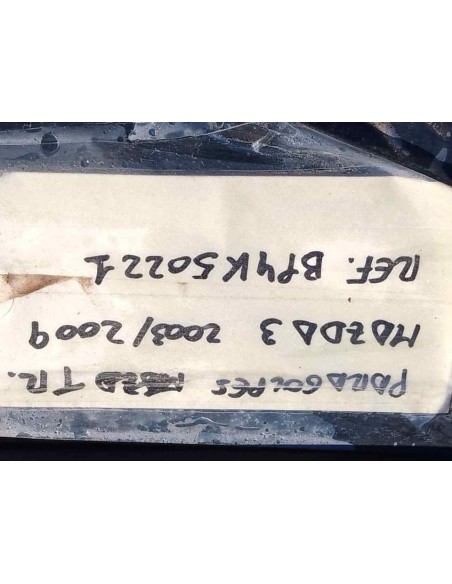 PARAGOLPES TR.
MAZDA 3 2003/2009
REF. BP4K50221